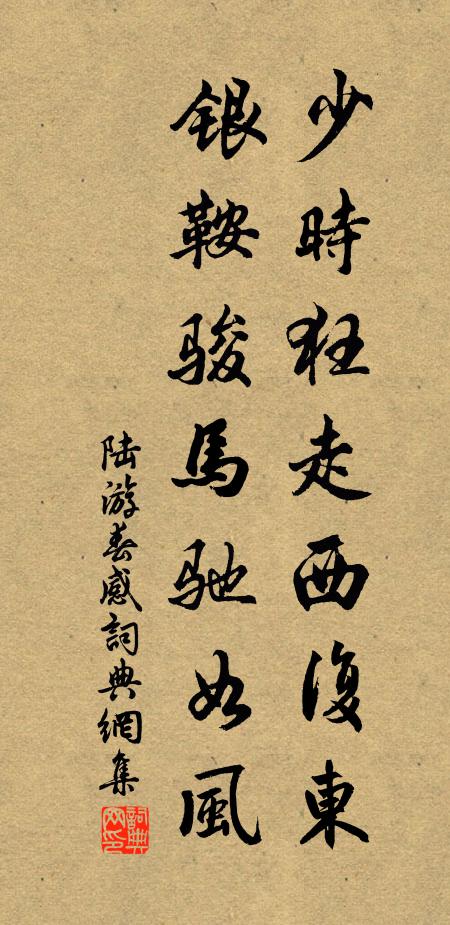 少時狂走西復東
銀鞍駿馬馳如風
陸游春感詞典網集
詞典网印